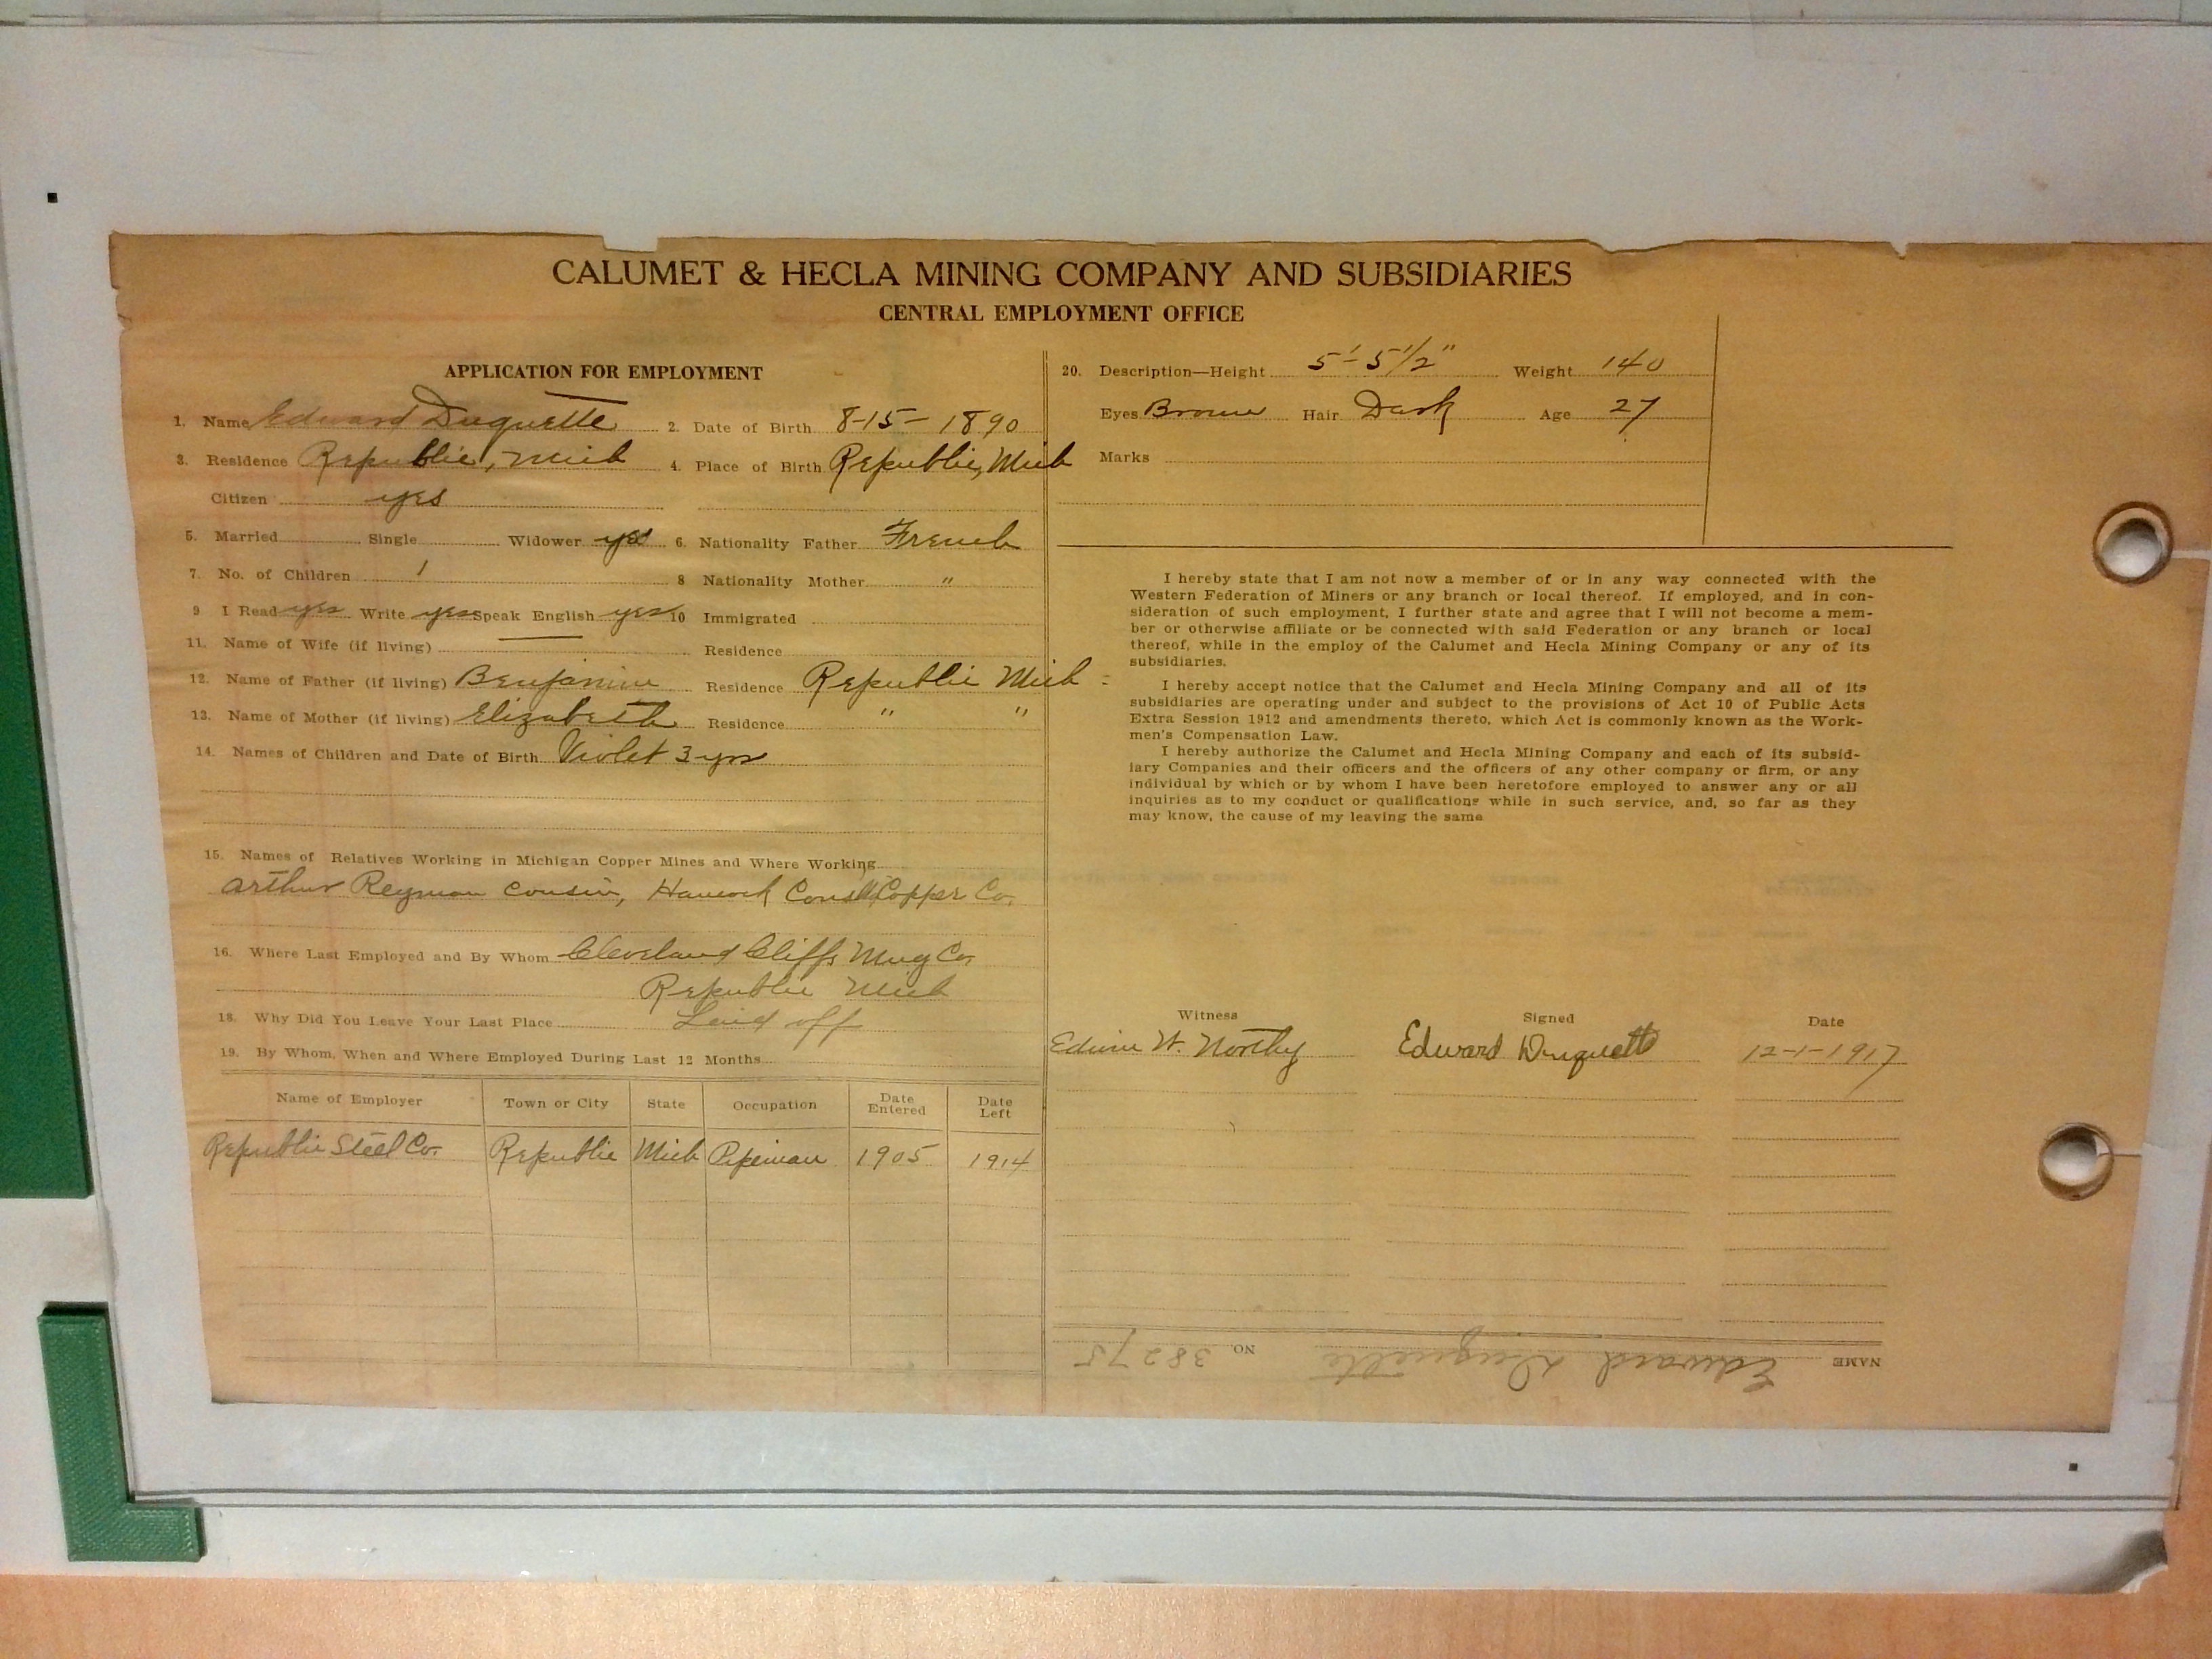 CALUMET & HECLA MINING COMPANY AND SUBSIDIARIES
CENTRAL EMPLOYMENT OFFICE
APPLICATION FOR EMPLOYMENT
1. Name Edward Duquette 2. Date of Birth 8-15-1890
3. Residence Republic, Mich 4. Place of Birth Republic, Mich
Citizen yes
5. Married Single Widower yes 6. Nationality Father French
7. No. of Children 1 8 Nationality Mother "
9 I Read yes Write yes Speak English yes 10 Immigrated
11. Name of Wife (if living) Residence
12. Name of Father (if living) Benjamin Residence Republic Mich
13. Name of Mother (if living) Elizabeth Residence " "
14. Names of Children and Date of Birth Violet 3 yrs
15. Names of Relatives Working in Michigan Copper Mines and Where Working
Arthur Reyman cousin, Hancock Consld Copper Co.
16. Where Last Employed and By Whom Cleveland Cliffs Mng Co.
Republic Mich
18. Why Did You Leave Your Last Place Laid off
19. By Whom, When and Where Employed During Last 12 Months
Name of Employer Town or City State Occupation Date Entered Date Left
Republic Steel Co. Republic Mich Pipeman 1905 1914
20. Description—Height 5'-5 1/2" Weight 140
Eyes Brown Hair Dark Age 27
Marks
I hereby state that I am not now a member of or in any way connected with the
Western Federation of Miners or any branch or local thereof. If employed, and in con-
sideration of such employment, I further state and agree that I will not become a mem-
ber or otherwise affiliate or be connected with said Federation or any branch or local
thereof, while in the employ of the Calumet and Hecla Mining Company or any of its
subsidiaries.
I hereby accept notice that the Calumet and Hecla Mining Company and all of its
subsidiaries are operating under and subject to the provisions of Act 10 of Public Acts
Extra Session 1912 and amendments thereto, which Act is commonly known as the Work-
men's Compensation Law.
I hereby authorize the Calumet and Hecla Mining Company and each of its subsid-
iary Companies and their officers and the officers of any other company or firm, or any
individual by which or by whom I have been heretofore employed to answer any or all
inquiries as to my conduct or qualifications while in such service, and, so far as they
may know, the cause of my leaving the same
Witness Signed Date
Edwin W. Northey Edward Duquette 12-1-1917
NAME Edward Duquette NO. 38275